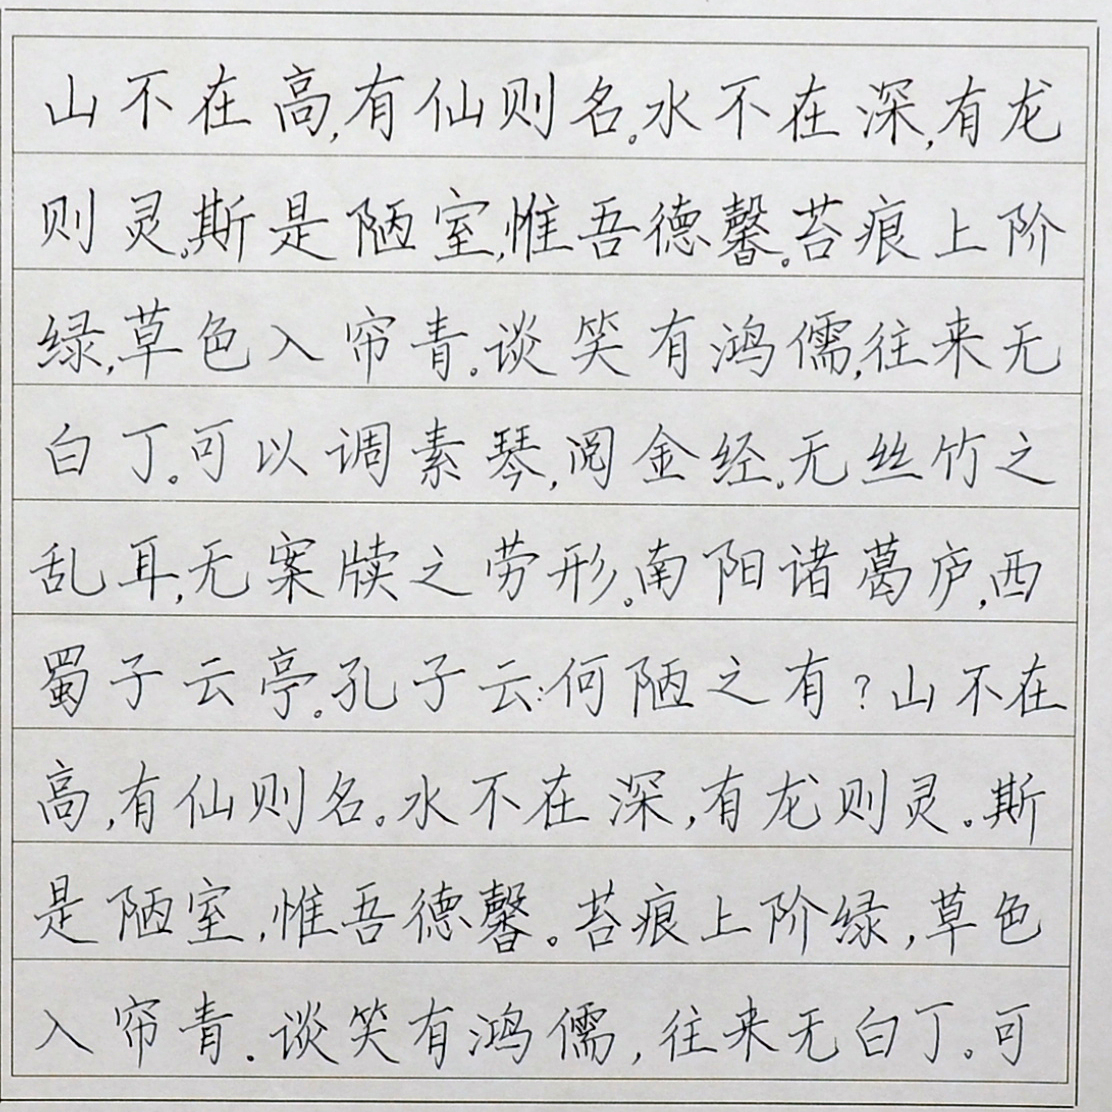 山不在高,有仙则名。水不在深,有龙
则灵。斯是陋室,惟吾德馨。苔痕上阶
绿,草色入帘青。谈笑有鸿儒,往来无
白丁。可以调素琴,阅金经。无丝竹之
乱耳,无案牍之劳形。南阳诸葛庐,西
蜀子云亭。孔子云:何陋之有?山不在
高,有仙则名。水不在深,有龙则灵。斯
是陋室,惟吾德馨。苔痕上阶绿,草色
入帘青.谈笑有鸿儒,往来无白丁。可